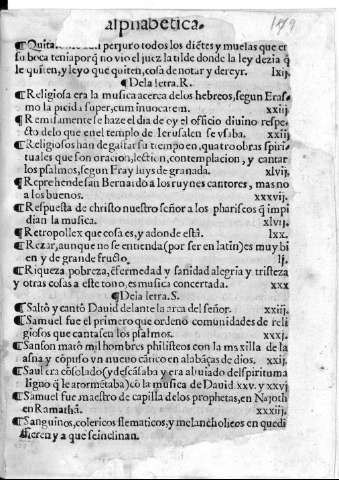 alphabetica.
¶Quita perjuro todos los diẽtes y muelas que en
su boca tenia porq̃ no vio el juez la tilde donde la ley dezia q̃
le quiten, y leyo que quiten, cosa de notar y de reyr. lxij.
¶De la letra. R.
¶Religiosa era la musica acerca delos hebreos, segun Eras-
mo la picida super, cum inuocarem. xxiij.
¶Remissamente se haze el dia de oy el officio diuino respe-
cto delo que enel templo de Ierusalen se vsaba. xxiij
¶Religiosos han de gastar su tiempo en, quatro obras spiri-
tuales que son oracion, lection, contemplacion, y cantar
los psalmos, segun Fray luys de granada. xlvij.
¶Reprehende san Bernardo a los ruynes cantores, mas no
a los buenos. xxxvij.
¶Respuesta de christo nuestro señor a los phariseos q̃ impi
dian la musica. xlvij.
¶Retropollex que cosa es, y adonde està. lxx.
¶Rezar, aunque no se entienda (por ser en latin) es muy bi
en y de grande fructo. lj.
¶Riqueza pobreza, ẽfermedad y sanidad alegria y tristeza
y otras cosas a este tono, es musica concertada. xxx
¶De la letra. S.
¶Saltò y cantò Dauid delante la arca del señor. xxiij.
¶Samuel fue el primero que ordenò comunidades de reli
giosos que cantasen los psalmos. xxxj.
¶Sanson matò mil hombres philisteos con la mexilla de la
asna y cõpuso vn nueuo cãtico en alabãças de dios. xxij.
¶Saul era cõsolado (y descãsaba y era aluiado del spiritu ma
ligno q̃ le atormẽtaba) cõ la musica de Dauid. xxv. y xxvj
¶Samuel fue maestro de capilla de los prophetas, en Najoth
en Ramathà. xxxiij.
¶Sanguinos, colericos flematicos, y melancholicos en que di
fieren y a que se inclinan.